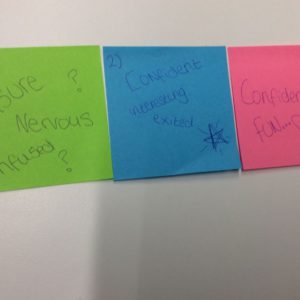 sure ?
Nervous
nfused ?
2) Confident
interesting
exited
Confiden
FUN...